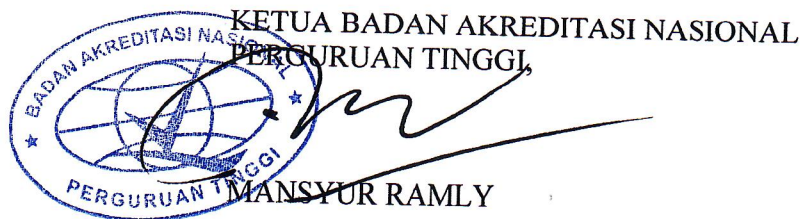 KETUA BADAN AKREDITASI NASIONAL
PERGURUAN TINGGI,
BADAN AKREDITASI NASIONAL
PERGURUAN TINGGI
MANSYUR RAMLY